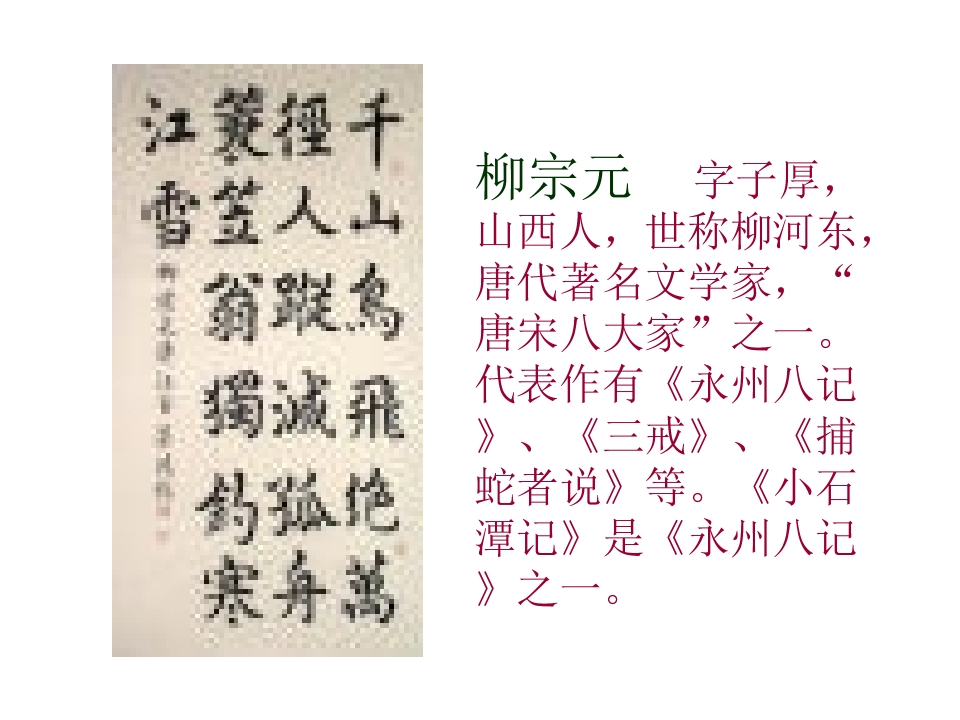 千山鳥飛绝萬
徑人蹤滅孤舟
蓑笠翁獨釣寒
江雪
柳宗元 字子厚，
山西人，世称柳河东，
唐代著名文学家，“
唐宋八大家”之一。
代表作有《永州八记
》、《三戒》、《捕
蛇者说》等。《小石
潭记》是《永州八记
》之一。